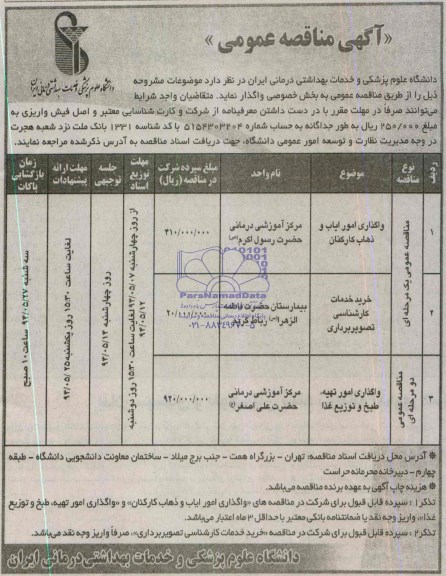 «آگهی مناقصه عمومی»
دانشگاه علوم پزشکی و خدمات بهداشتی درمانی ایران
دانشگاه علوم پزشکی و خدمات بهداشتی درمانی ایران در نظر دارد موضوعات مشروحه
ذیل را از طریق مناقصه عمومی به بخش خصوصی واگذار نماید. متقاضیان واجد شرایط
می‌توانند صرفاً در مهلت مقرر با در دست داشتن معرفینامه از شرکت و کارت شناسایی معتبر و اصل فیش واریزی به
مبلغ ۲۵۰/۰۰۰ ریال به طور جداگانه به حساب شماره ۵۱۵۴۳۰۳۲۰۴ با کد شناسه ۱۳۳۱ بانک ملت نزد شعبه هجرت
در وجه مدیریت نظارت و توسعه امور عمومی دانشگاه، جهت دریافت اسناد مناقصه به آدرس ذکرشده مراجعه نمایند.
ردیف | نوع مناقصه | موضوع | نام واحد | مبلغ سپرده شرکت در مناقصه (ریال) | مهلت توزیع اسناد | جلسه توجیهی | مهلت ارائه پیشنهادات | زمان بازگشایی پاکات
۱ | مناقصه عمومی یک مرحله ای | واگذاری امور ایاب و ذهاب کارکنان | مرکز آموزشی درمانی حضرت رسول اکرم(ص) | ۳۱۰/۰۰۰/۰۰۰
۲ | خرید خدمات کارشناسی تصویربرداری | بیمارستان حضرت فاطمه الزهرا(س) رباط کریم
۳ | مناقصه عمومی دو مرحله ای | واگذاری امور تهیه، طبخ و توزیع غذا | مرکز آموزشی درمانی حضرت علی اصغر(ع) | ۹۲۰/۰۰۰/۰۰۰
از روز چهارشنبه ۹۴/۰۵/۰۷ لغایت ساعت ۱۵:۳۰ روز دوشنبه ۹۴/۰۵/۱۲
روز چهارشنبه ۹۴/۰۵/۱۴
لغایت ساعت ۱۵:۳۰ روز یکشنبه ۹۴/۰۵/۲۵
سه شنبه ۹۴/۰۵/۲۷ ساعت ۱۰ صبح
ParsNamadData
۰۲۱-۸۸۳۴۹۶۷۰-۵
* آدرس محل دریافت اسناد مناقصه: تهران - بزرگراه همت - جنب برج میلاد - ساختمان معاونت دانشجویی دانشگاه - طبقه
چهارم - دبیرخانه محرمانه حراست
* هزینه چاپ آگهی به عهده برنده مناقصه می‌باشد.
تذکر۱: سپرده قابل قبول برای شرکت در مناقصه های «واگذاری امور ایاب و ذهاب کارکنان» و «واگذاری امور تهیه، طبخ و توزیع
غذا»، واریز وجه نقد یا ضمانتنامه بانکی معتبر با حداقل ۳ ماه اعتبار می‌باشد.
تذکر۲: سپرده قابل قبول برای شرکت در مناقصه «خرید خدمات کارشناسی تصویربرداری»، صرفاً واریز وجه نقد می‌باشد.
دانشگاه علوم پزشکی و خدمات بهداشتی درمانی ایران